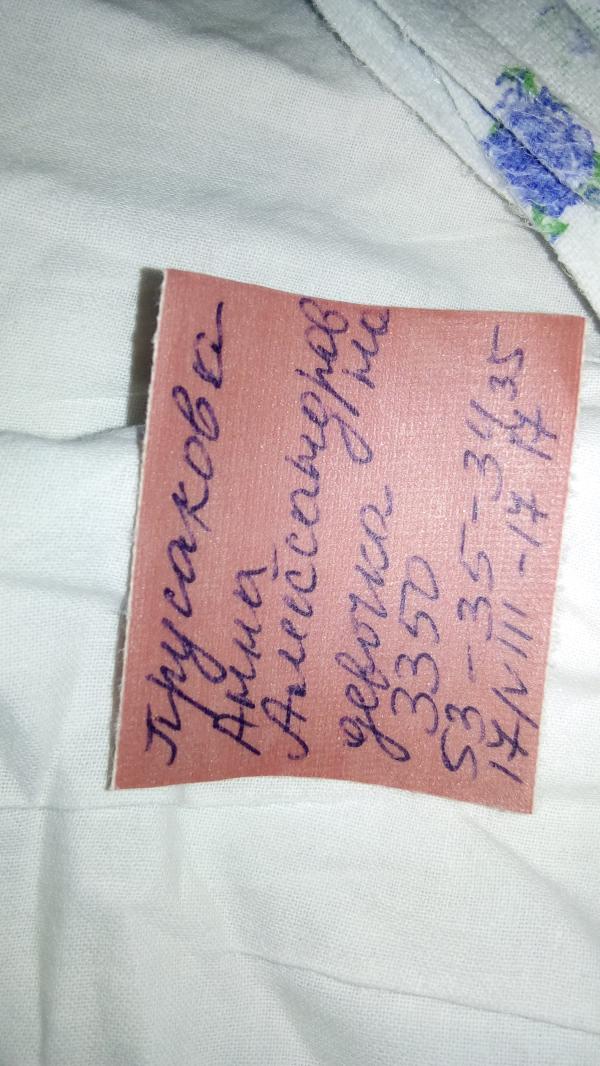 Прусакова
Анна
Александров
на
девочка
3350
53-35-34
17/VIII-17 17 35